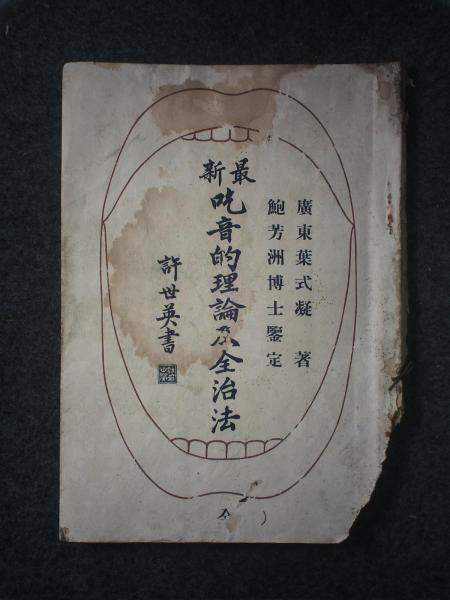 廣東葉式凝 著
鮑芳洲博士鑒定
最新
吃音的理論及全治法
許世英書